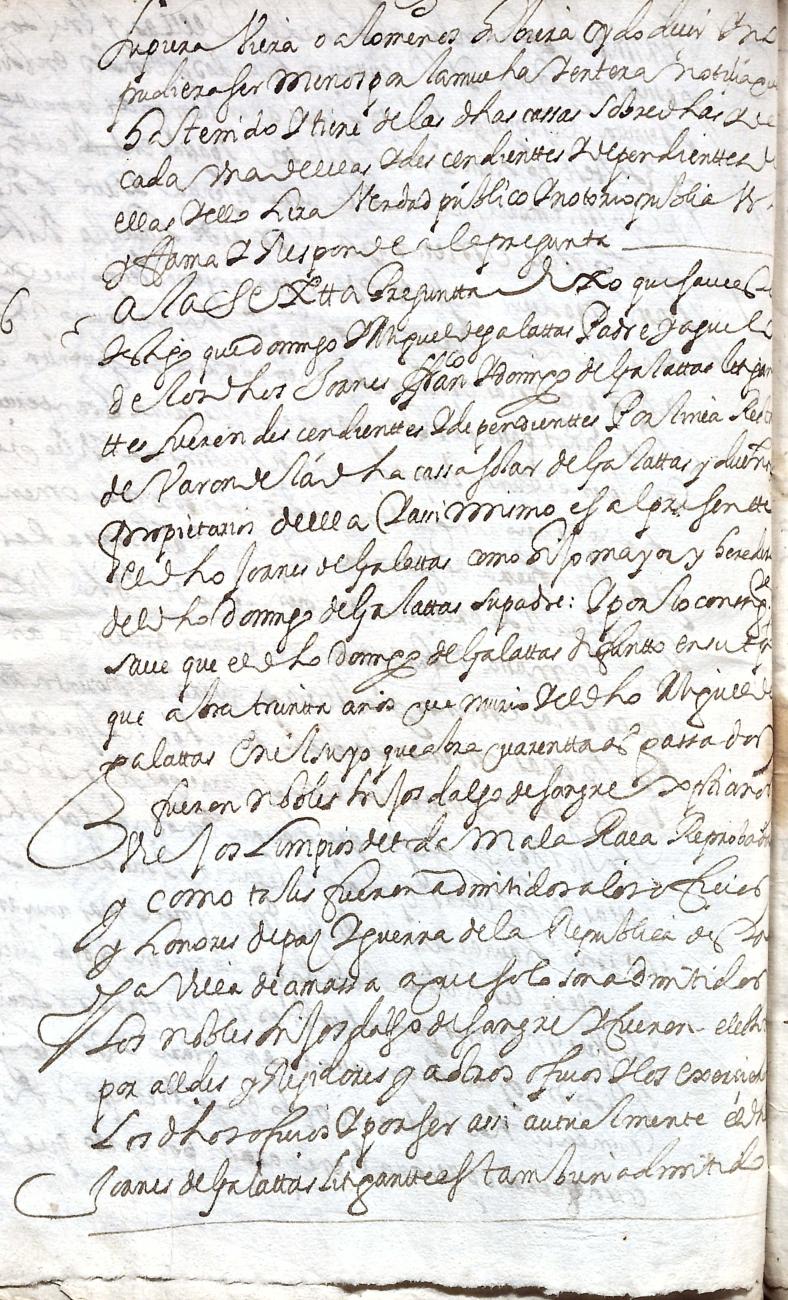 supiera viera o a lo menos hubiera oydo decir y no
pudiera ser menos por la mucha y entera noticia que
ha tenido y tiene de las dhas cassas sobredhas y de
cada una de ellas y descendienttes y dependienttes de
ellas y ello hera Verdad publico y notorio publica
y ffama y Responde a la pregunta
6 a la Sextta Preguntta dixo que save es
testigo que domingo y Miguel de galattas Padre y aguelo
de los dhos Joanes ffranco y domingo de Galattas litigan
ttes fueron descendienttes y dependienttes Por linea Recta
de Varon de la dha cassa solar de Galattas y dueños
propietarios de ella y assi mismo es al presentte
el dho Joanes de Galattas como hijo mayor y heredero
del dho domingo de Galattas su padre: y por lo consig.te
save que el dho domingo de Galattas difuntto en su
que abra treintta años que murio y el dho Miguel de
galattas en el suyo que abra quarentta as passados
fueron nobles hijosdalgo de sangre xpistianos
Viejos Limpios de tda Mala Raca Reprobada
y como tales fueron admitidos a los oficios
y honores de paz y guerra de la Republica de
ya Villa de amassa a que solo son admitidos
Los nobles hijosdalgo de sangre y fueron electos
por alldes y Regidores y a otros oficios y los exercieron
Los dhos oficios y por ser assi autualmente el dho
Joanes de Galattas litigantte es tambien admitido